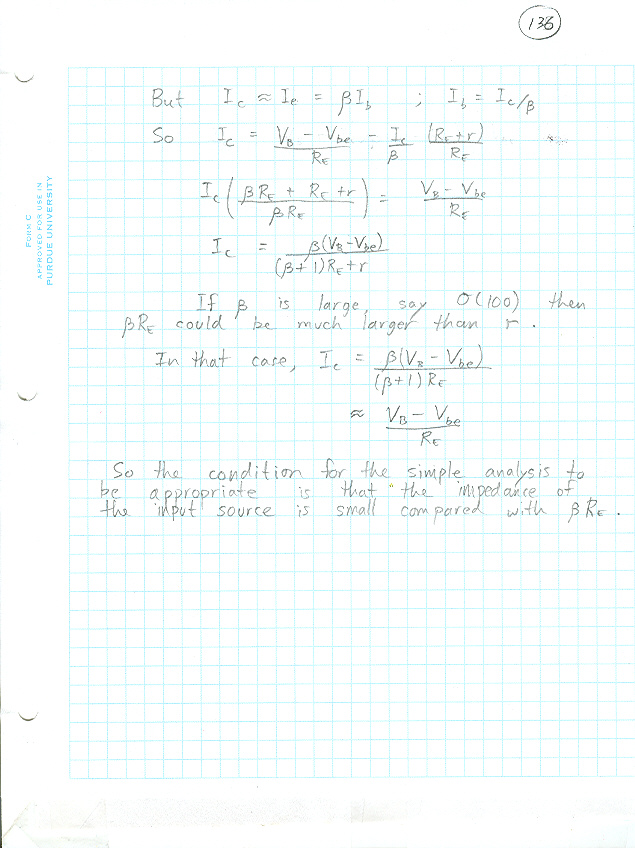 136
FORM C
APPROVED FOR USE IN
PURDUE UNIVERSITY
But Ic ≈ Ie = βIb ; Ib = Ic/β
So Ic = (VB - Vbe)/RE - Ic/β (RE+r)/RE
Ic ( (βRE + RE + r)/(βRE) ) = (VB - Vbe)/RE
Ic = β(VB-Vbe)/((β+1)RE+r)
If β is large, say O(100) then
βRE could be much larger than r.
In that case, Ic = β(VB - Vbe)/((β+1)RE)
≈ (VB - Vbe)/RE
So the condition for the simple analysis to
be appropriate is that the impedance of
the input source is small compared with βRE.